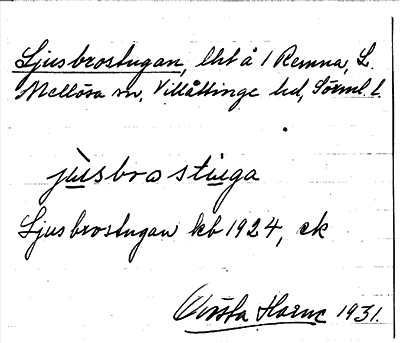 Ljusbrostugan, lht å 1 Remna, L.
Mellösa sn, Villåttinge hd, Sörml. l.
jùsbro stuga
Ljusbrostugan kb 1924, ek
1931.